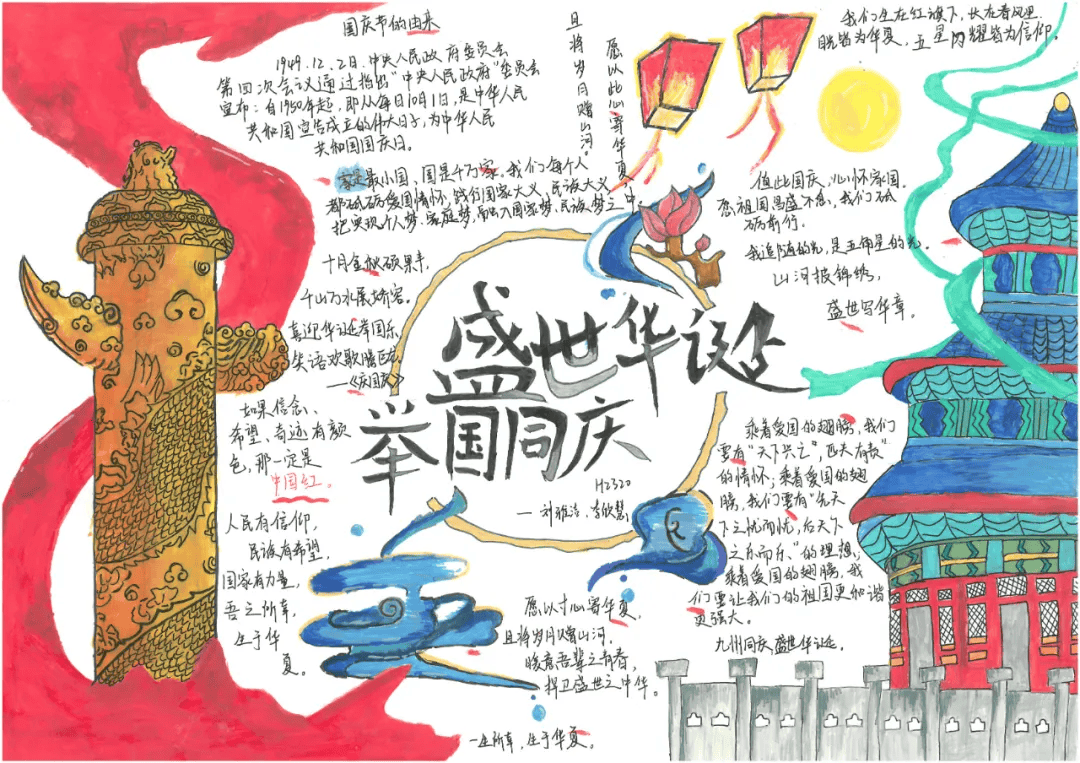 国庆节的由来
1949.12.2日,中央人民政府委员会
第四次会议通过指出"中央人民政府"委员会
宣布:自1950年起,即从每日10月1日,是中华人民
共和国宣告成立的伟大日子,为中华人民
共和国国庆日。
家是最小国,国是千万家,我们每个人
都砥砺爱国情怀,践行国家大义、民族大义
把实现个人梦、家庭梦,融入国家梦、民族梦之中。
十月金秋硕果丰,
千山万水展娇容。
喜迎华诞举国乐,
笑语欢歌腾巨龙。
—《庆国庆》
如果信念、
希望、奇迹有颜
色,那一定是
中国红。
人民有信仰,
民族有希望,
国家有力量,
吾之所幸,
生于华
夏。
且将岁月赠山河。
愿以此心寄华夏,
我们生在红旗下,长在春风里.
目光皆为华夏,五星闪耀皆为信仰。
值此国庆,心怀家国。
愿祖国昌盛不息,我们砥
砺前行。
我追随的光,是五星的光。
山河披锦绣,
盛世写华章。
盛世华诞
举国同庆
H2320
— 刘雅洁、李欣慧
乘着爱国的翅膀,我们
要有"天下兴亡,匹夫有责"
的情怀;乘着爱国的翅
膀,我们要有"先天
下之忧而忧,后天下
之乐而乐"的理想;
乘着爱国的翅膀,我
们要让我们的祖国更加和谐
更强大。
九州同庆,盛世华诞。
愿以寸心寄华夏,
且将岁月赠山河.
吾辈之青春,
捍卫盛世之中华。
一生所幸,生于华夏。